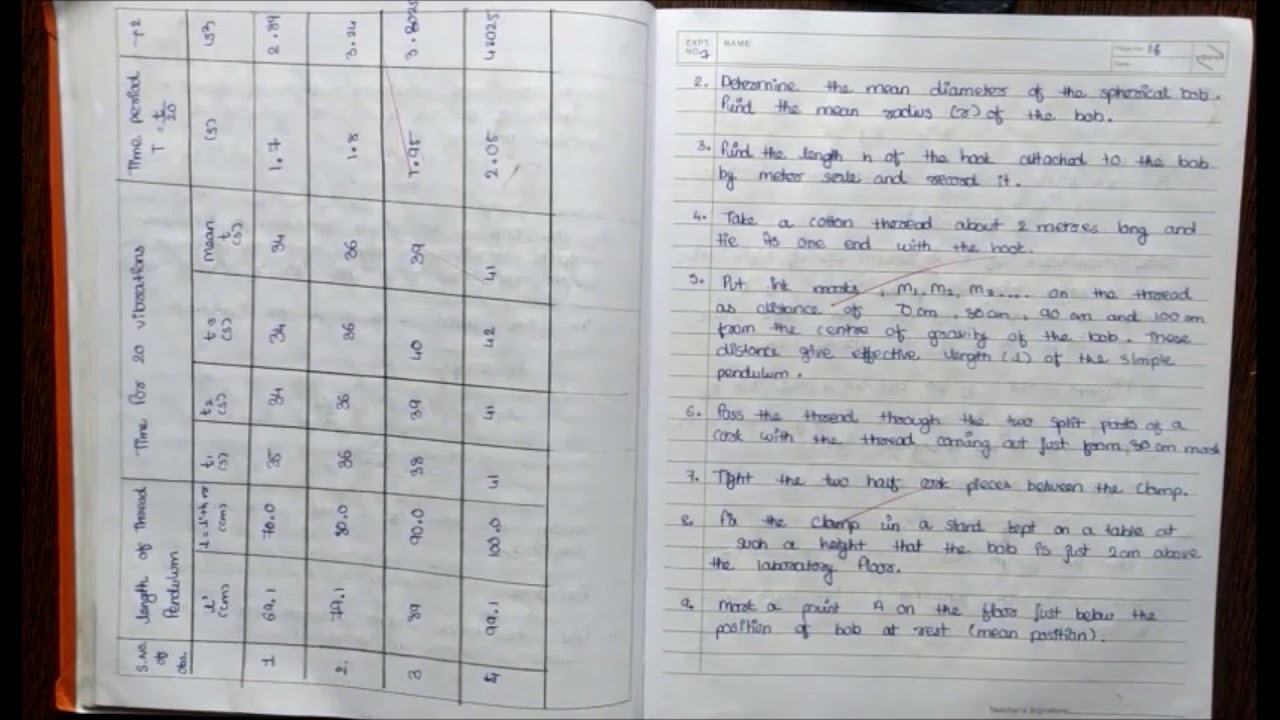 S.No. of obs.
Length of Thread Pendulum
Time for 20 vibrations
Time period T = t/20
T2
l' (cm)
l = l'+h+r (cm)
t1 (s)
t2 (s)
t3 (s)
mean t (s)
(s)
(s2)
1 69.1 70.0 35 34 34 34 1.7 2.89
2. 79.1 80.0 36 36 36 36 1.8 3.24
3 89 90.0 38 39 40 39 1.95 3.8025
4 99.1 100.0 41 41 42 41 2.05 42025
EXPT. NO. 7
NAME:
Page No. 16
Date:
2. Determine the mean diameter of the spherical bob.
Find the mean radius (r) of the bob.
3. Find the length h of the hook attached to the bob
by meter scale and record it.
4. Take a cotton thread about 2 metres long and
tie its one end with the hook.
5. Put ink marks, m1, m2, m3.... on the thread
as distance of 70cm, 80cm, 90 cm and 100cm
from the centre of gravity of the bob. These
distance give effective length (l) of the simple
pendulum.
6. Pass the thread through the two split parts of a
cork with the thread coming out just from, 80 cm mark
7. Tight the two half cork pieces between the clamp.
8. Fix the clamp in a stand kept on a table at
such a height that the bob is just 2cm above
the laboratory floor.
9. Mark a point A on the floor just below the
position of bob at rest (mean position).
Teacher's Signature